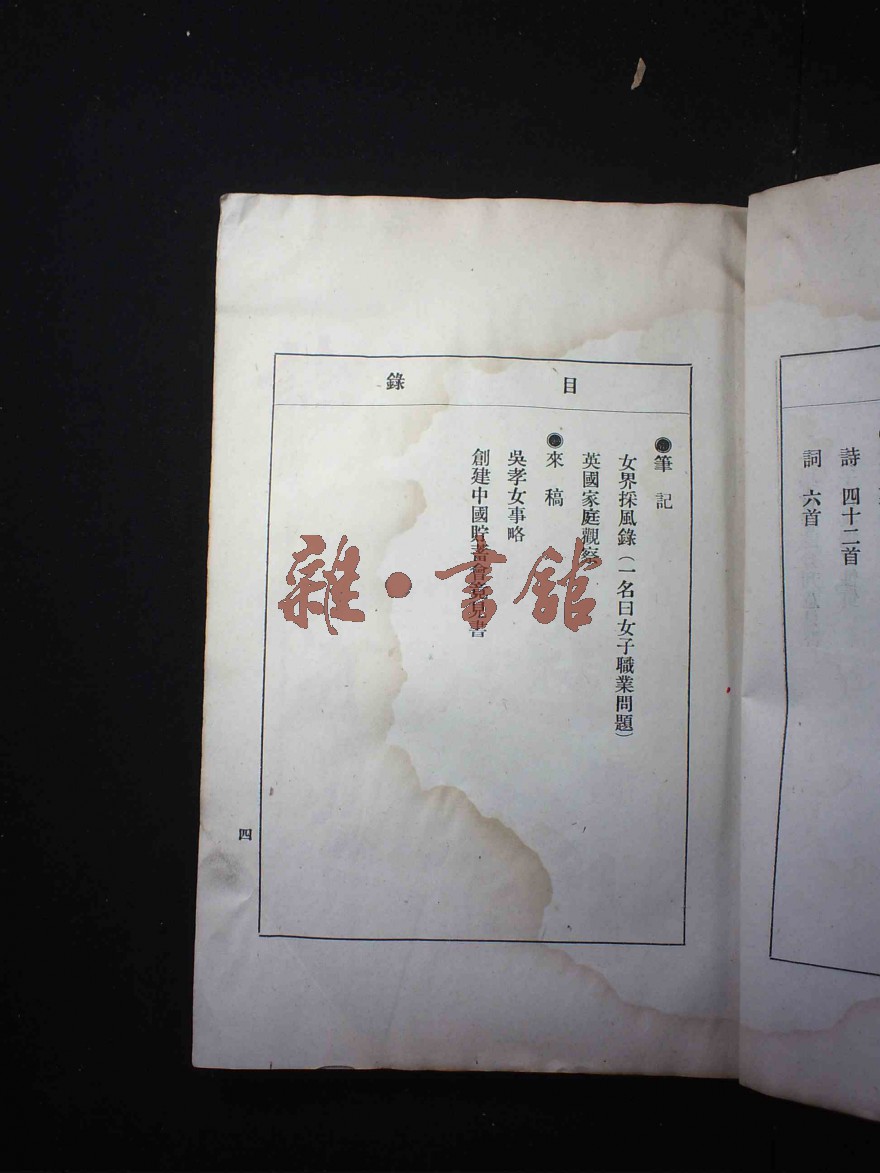 詩 四十二首
詞 六首
目錄
●筆記
女界採風錄(一名曰女子職業問題)
英國家庭觀察
●來稿
吳孝女事略
創建中國貯蓄會意見書
四
雜·書館